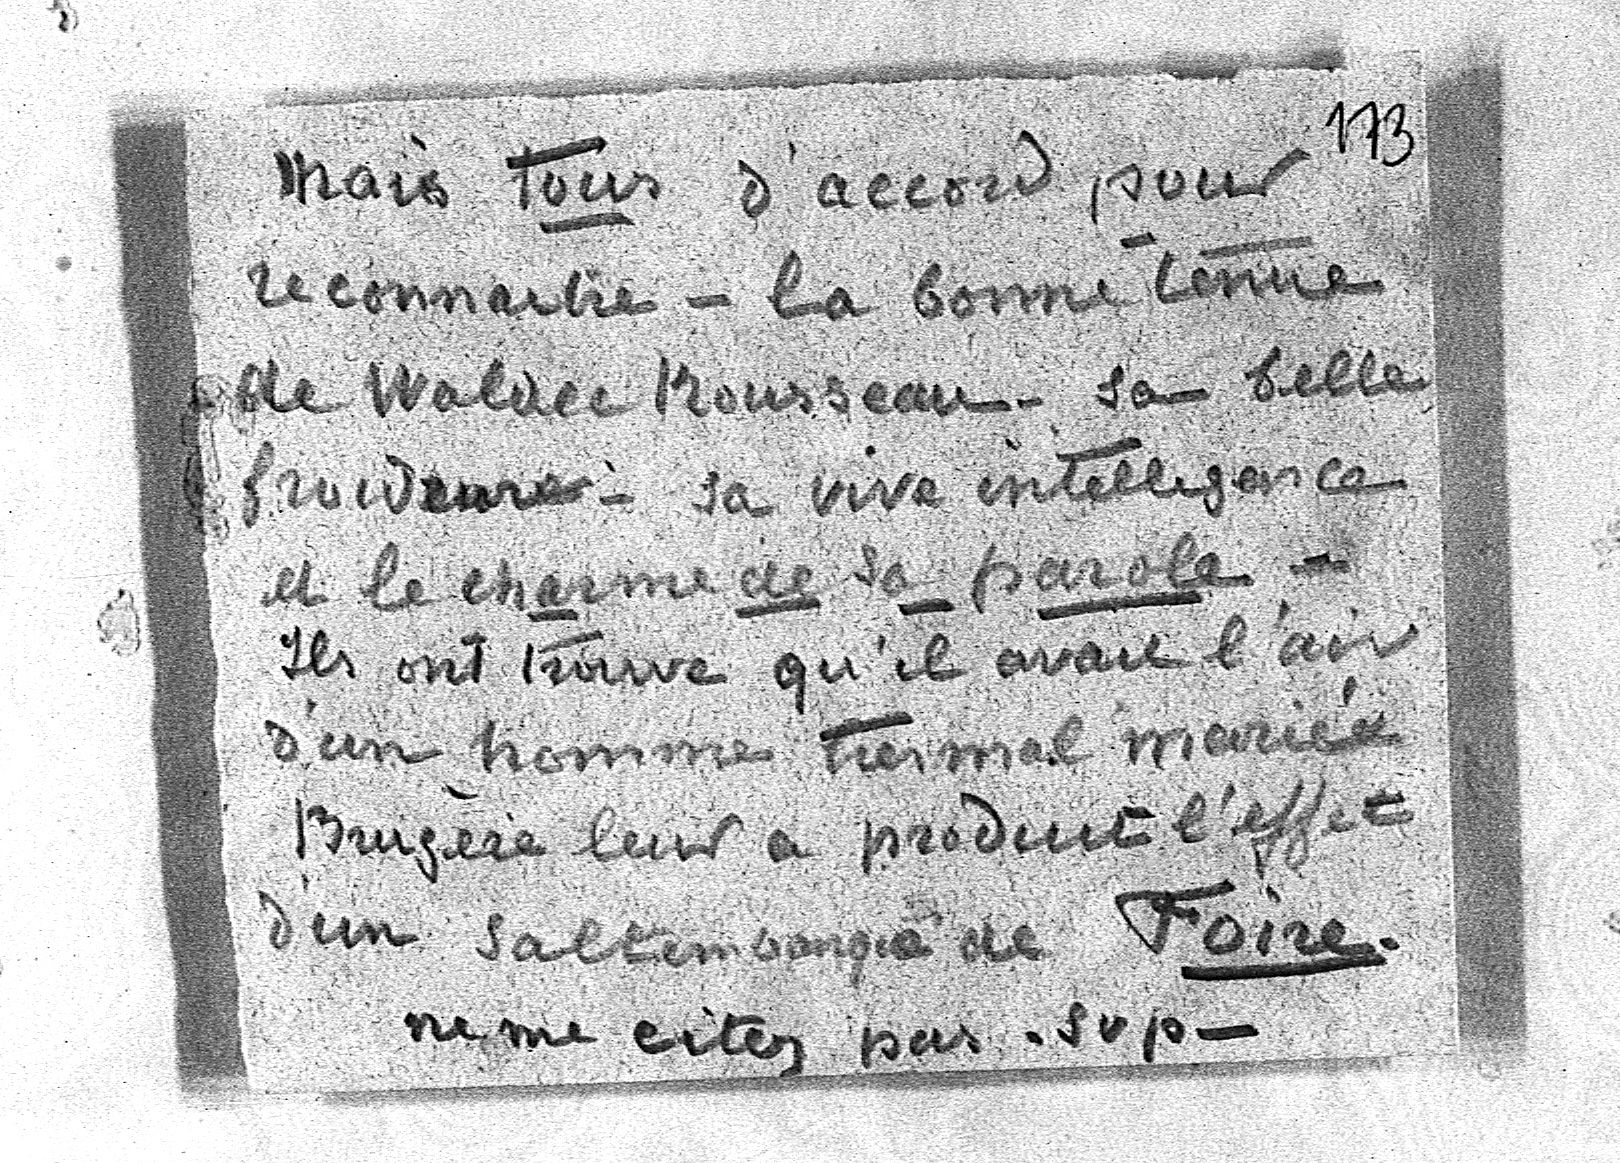 173
Mais tous d'accord pour
reconnaitre - la bonne tenue
de Waldec Rousseau - sa belle
froideur - sa vive intelligence
et le charme de sa parole -
Ils ont trouve qu'il avait l'air
d'un homme tres mal marié
Brugère leur a produit l'effet
d'un saltembanque de Foire.
ne me citez pas . svp -